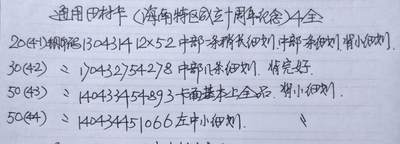 通用田村卡《海南特区成立十周年纪念》4全
20(4-1)铜陶瓷130431412×52中部一条稍长细划.中部一条细划.背小细划.
30(4-2) 〃 170432754278中部几条细划.背完好.
50(4-3) 〃 140433454893卡面基本上全品.背小细划.
50(4-4) 〃 140434451066左中小细划. 〃